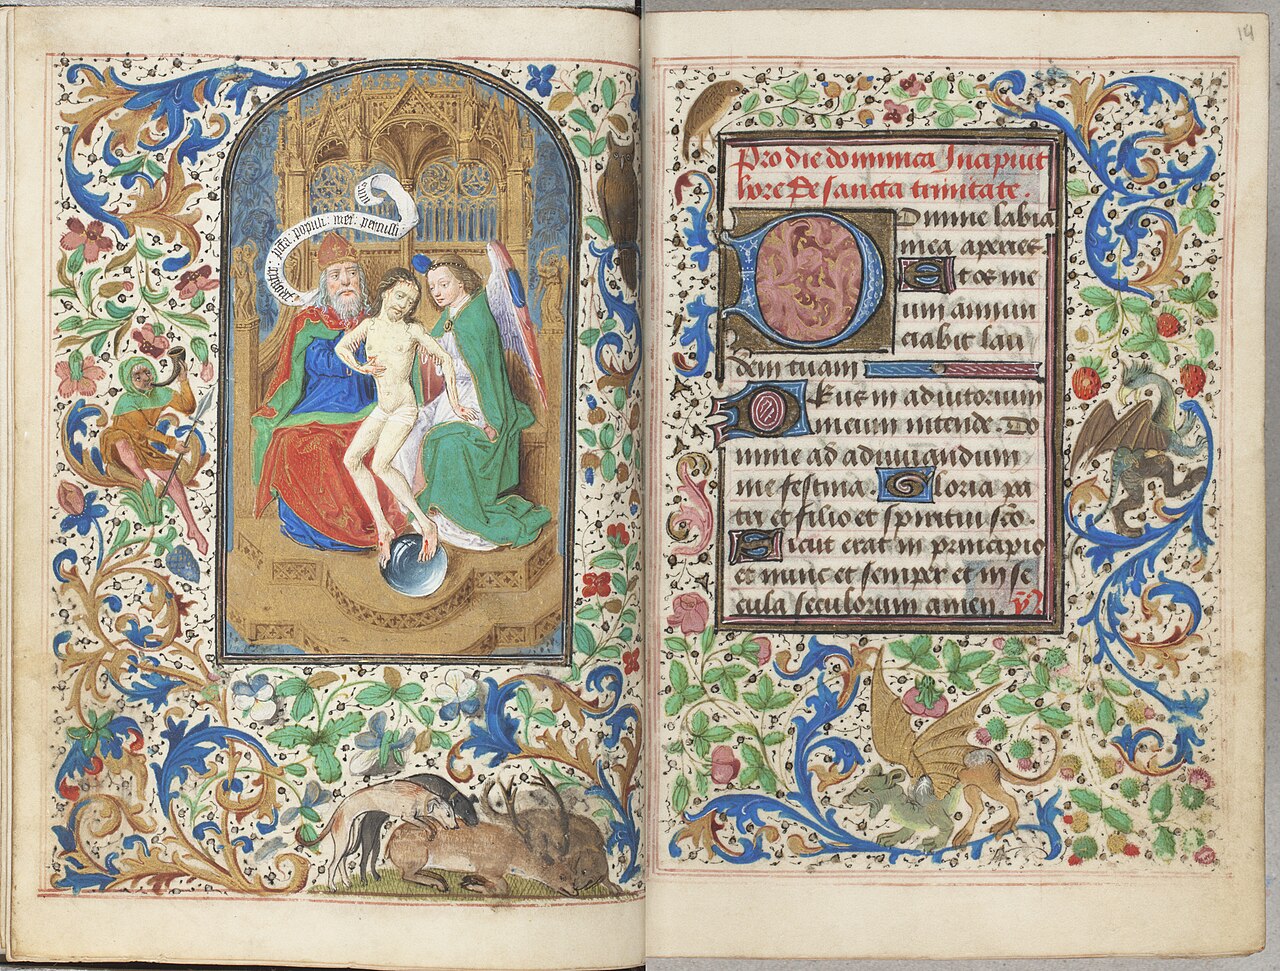 populi: mei: percussi:
eum
14
Pro die dominica Incipiut
hore De sancta trinitate.
Domine labia
mea aperies
Et os me
um annun
ciabit lau
dem tuam
Deus in adiutorium
meum intende Do
mine ad adiuuandum
me festina. Gloria pa
tri et filio et spiritui sco.
Sicut erat in principio
et nunc et semper et in se
cula seculorum amen.